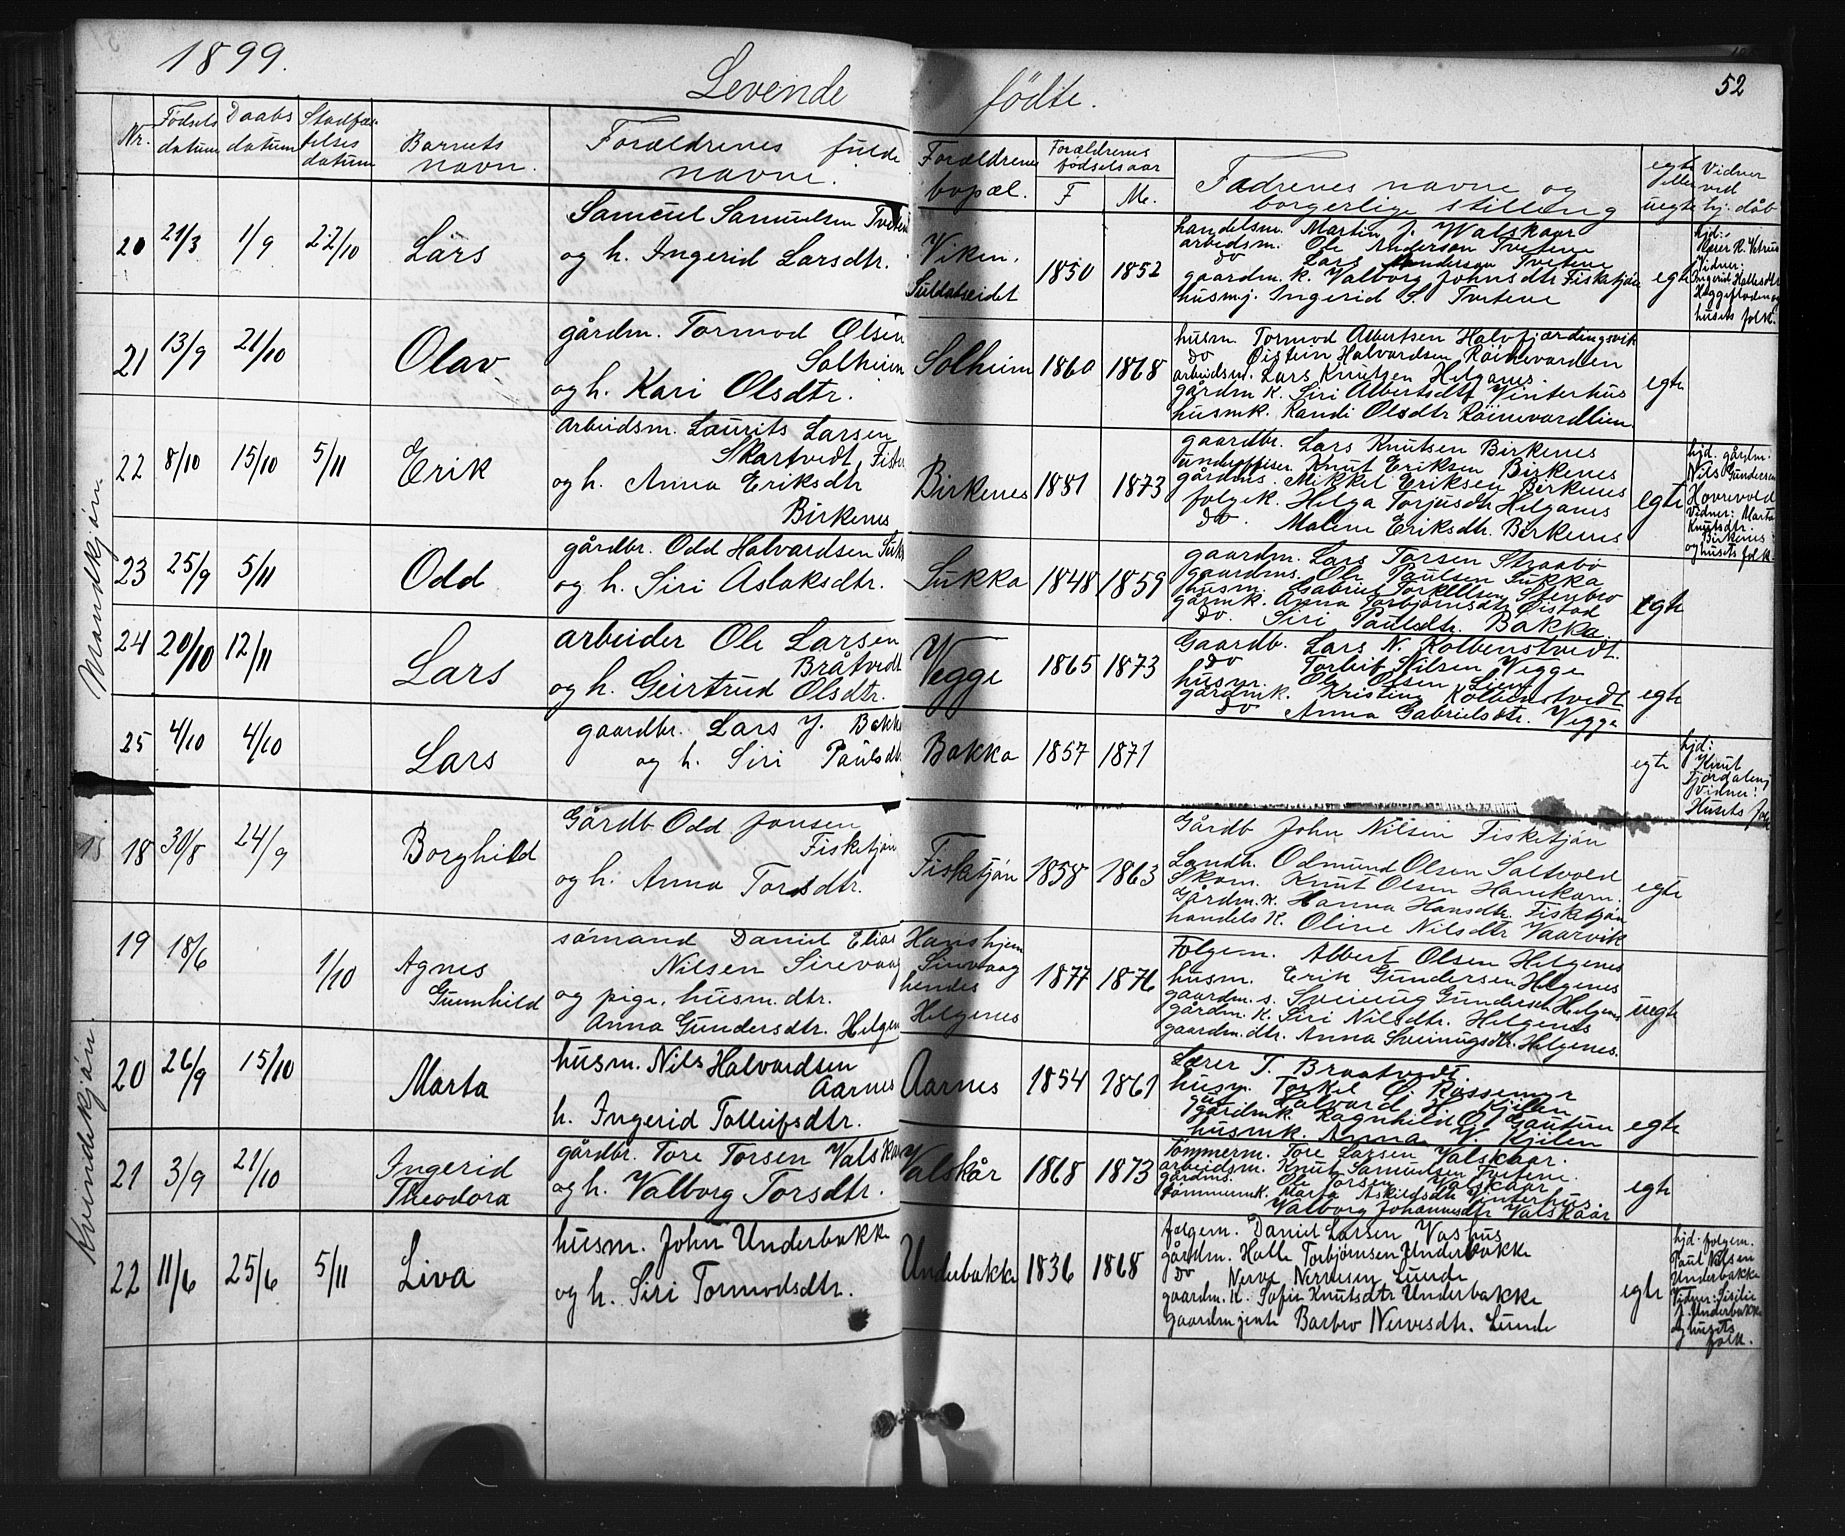 1899.
52
Levende fødte.
Nr. Fødsels datum Daabs datum Stadfæstelses datum Barnets navn. Forældrenes fulde navne. Forældrenes bopæl. Forældrenes fødselsaar F M. Fadrenes navne og borgerlige stilling egte eller uegte Vidner ved hj. dåb
Mandkjøn.
20 21/3 1/9 22/10 Lars
Samuel Samuelsen Tveten
og h. Ingerid Larsdtr.
Viken.
Suldalseidet
1850 1852
handelsm. Martin J. Walskaar
arbedsm. Ole Anderson Tvetene
do Lars Anderson Tvetene
gaardm. k. Valborg Johnsdtr Fisketjøn
husmj. Ingerid S. Tvetene
egte
hjd:
Vidner:
Ingerid Hallesdtr
husets folk.
21 13/9 21/10 Olav
gårdm. Tormod Olsen
Solheim
og h. Kari Olsdtr.
Solheim 1860 1868
husm. Tormod Albertsen Halvfjærdingsvik
do Øistein Halvardsen Røinevardlien
arbeidsm. Lars Knutsen Helganes.
gårdm k. Siri Albertsdtr Vinterhus
husmk. Randi Olsdtr Røinevardlien
egte
22 8/10 15/10 5/11 Erik
Arbeidsm. Laurits Larsen
Skartvedt, Fister
og h. Anna Eriksdtr
Birkenes
Birkenes 1881 1873
gaardbr. Lars Knutsen Birkenes
underoffiser Knut Eriksen Birkenes
gårdms. Mikkel Eriksen Birkenes
folgek. Helga Torjusdtr Helganes
do. Malene Eriksdtr. Birkenes
egte
hjd. gårdm.
Nils Gundersen
Hovrevold
Vidner: Marta
Knutsdtr.
Birkenes
og husets folk
23 25/9 5/11 Odd
gårdbr. Odd Halvardsen Suk
og h. Siri Aslaksdtr.
Sukka 1848 1859
gaardm. Lars Torsen Straabø
gaardms. Ole Paulsen Sukka
husm. Gabriel Torkellsen Stenbro
gårmk. Anna Torbjørnsdtr Øistad
do. Siri Paulsdtr. Bakka.
egte
24 20/10 12/11 Lars
arbeider Ole Larsen
Bråtvedt
og h. Geirtrud Olsdtr.
Vegge 1865 1873
Gaardb. Lars N. Kolbenstvedt.
do Torleif Nilsen Vegge
husm. Ole Olsen Lien
gårdmk. Kristine Kolbenstvedt
do Anna Gabrielsdtr. Vegge
egte
25 4/10 4/10 Lars
gaardbr. Lars J. Bakke
og h. Siri Paulsdtr.
Bakka 1857 1871
egte
hjd:
Knut
Vidner:
Husets folk
Kvindekjøn.
18 30/8 24/9 Borghild
Gårdb Odd Jonsen
Fisketjøn
og h. Anna Torsdtr.
Fisketjøn 1858 1863
Gårdb John Nilsen Fisketjøn
Landh. Odmund Olsen Saltvold
Skom. Knut Olsen Hamkorn.
Gårdm. k. Hanna Hansdtr. Fisketjøn
handels k. Oline Nilsdtr Vaarvik
egte
19 18/6 1/10 Agnes
Gunnhild
sømand Daniel Elias
Nilsen Sirevaag
og pige, husm. dtr.
Anna Gundersdtr. Helgen
Hans hjem
Sirevaag
hendes
Helgenes
1877 1876
Folgem. Albert Olsen Helgenes
husm. Erik Gundersen Helgenes
gaardm. s. Sveinug Gundersen Helgenes
gårdm. k. Siri Nilsdtr. Helgenes
gaardm. dtr. Anna Sveinugsdtr. Helgenes.
uegte
20 26/9 15/10 Marta
husm. Nils Halvardsen
Aarnes
h. Ingerid Tolleifsdtr.
Aarnes 1854 1861
Lærer T. Braatvedt.
husm. Torkel Ø. Røssemyr
gut Halvard J. Kjilen
gårdmk. Ragnhild O. Gautun
husmk. Anna N. Kjilen
egte
21 3/9 21/10 Ingerid
Theodora
gårdbr. Tore Torsen Valskaar
og h. Valborg Torsdtr.
Valskår 1868 1873
Tømmerm. Tore Larsen Valskaar.
arbeidsm. Knut Samuelsen Tvetene.
gårdms. Ole Torsen Valskaar
tømmermk. Marta Askildsdtr Vinterhus
Valborg Johannesdtr Valskaar
egte
22 11/6 25/6 5/11 Liva
husm. John Underbakke
og h. Siri Tormodsdtr.
Underbakke 1836 1868
folgem. Daniel Larsen Vashus
gårdm. Halle Torbjørnsen Underbakke
do Nerve Nervesen Lunde
gaardm. k. Sofie Knutsdtr Underbakke
Gaardmjente Barbro Nervesdtr. Lunde
egte
hjd. folgem.
Paul Nilsen
Underbakke
Vidner: Sisilie
J. Underbakke
og husets
folk.